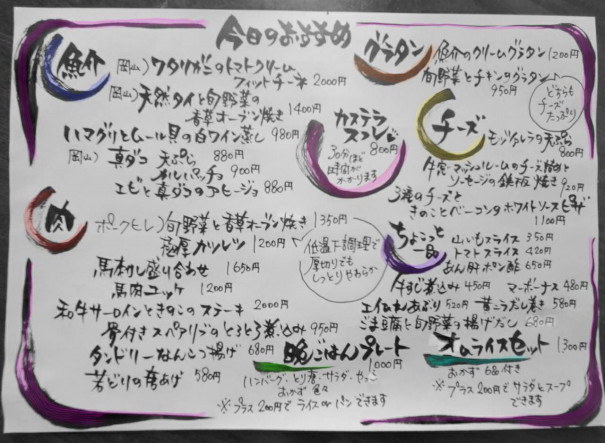 今日のおすすめ
魚介
岡山)ワタリガニのトマトクリーム
フィットチーネ 2000円
岡山)天然タイと旬野菜の
香草オーブン焼き 1400円
ハマグリとムール貝の白ワイン蒸し 980円
岡山)真ダコ 天ぷら 880円
カルパッチョ 900円
エビと真ダコのアヒージョ 880円
カステラ
800円
30分ほど
時間が
かかります
グラタン
魚介のクリームグラタン 1200円
旬野菜とチキンのグラタン
950円
どちらも
チーズ
たっぷり
チーズ
モッツァレラの天ぷら
800円
牛肉・マッシュルームのチーズ焼き
ソーセージの鉄板焼き 920円
3種のチーズと
きのことベーコンホワイトソースピザ
1100円
肉
ポークヒレ)旬野菜と香草オーブン焼き 1350円
極厚カツレツ 1200円
低温下調理で
厚切りでも
しっとりやわらか
馬刺し盛り合わせ 1650円
馬肉ユッケ 1200円
和牛サーロインときのこのステーキ 2000円
骨付きスペアリブのとろとろ煮込み 950円
タンドリーなんこつ揚げ 680円
若どりの唐あげ 580円
ちょこっと
一品
山いもスライス 350円
トマトスライス 420円
あん肝ポン酢 650円
牛すじ煮込み 450円 マーボーナス 480円
エイひれあぶり 520円 だし巻き 580円
ごま豆腐と旬野菜の揚げだし 680円
晩ごはんプレート
1000円
ハンバーグ・とり唐・サラダ・
おかず 色々
※プラス200円でライスorパンできます
オムライスセット 1300円
おかず 6品付き
※プラス200円でサラダとスープ
できます